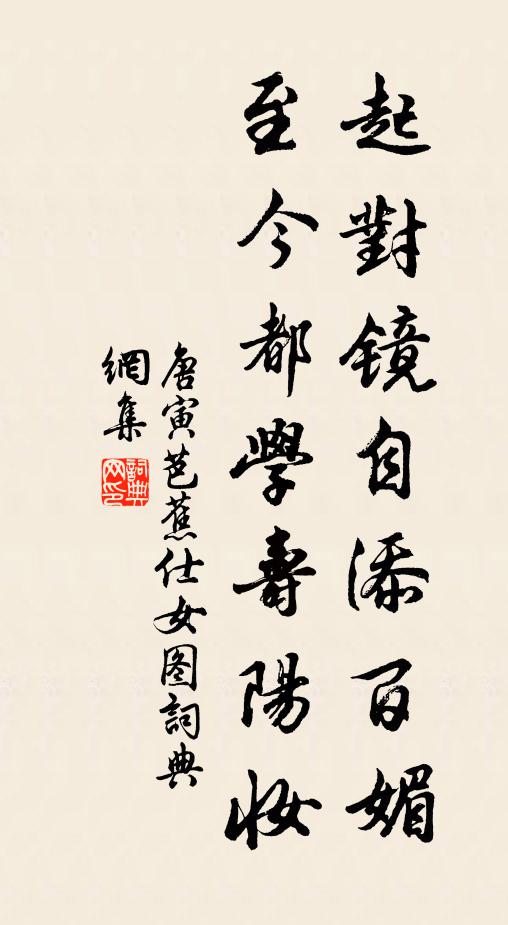 起對镜自添百媚
至今都學壽陽妆
唐寅芭蕉仕女图詞典
網集
詞典網印